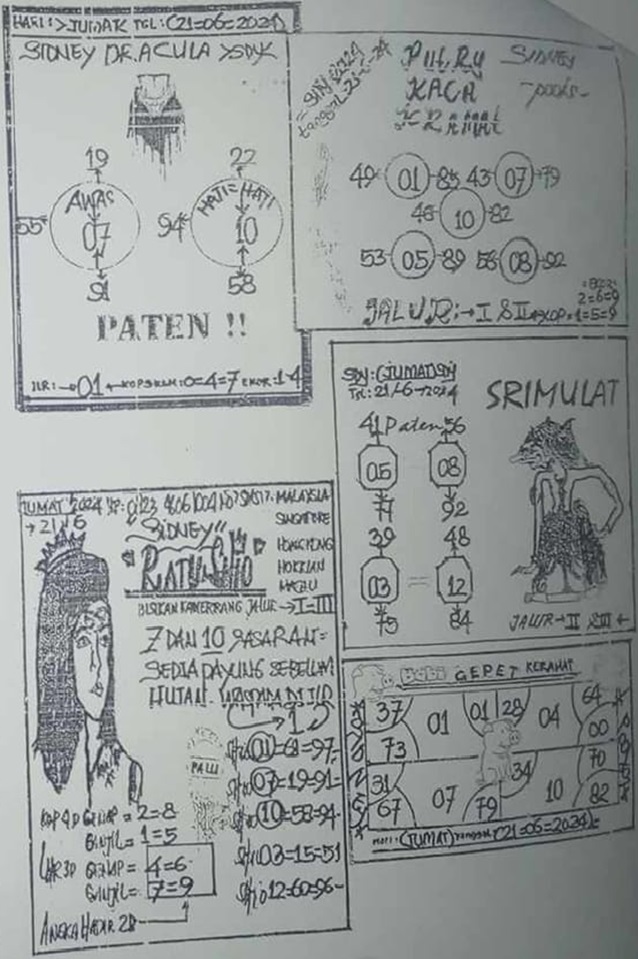 HARI: > JUMAT TGL: (21=06=2024)
SIDNEY DR.ACULA >SDY<
19 22
AWAS HATI=HATI
55 07 94 10
91 58
PATEN !!
JLR: → 01 ← KOP 0=4=7 EKOR: 1-4
PUTRY SIDNEY
KACA -pools-
KRAMAT
49 01 85 43 07 79
46 10 82
53 05 89 56 08 92
2=6=9
JALUR: → I & II KOP: 1=5=9
SDY: (JUMAT)SDY
TGL: 21/6→2024
SRIMULAT
41 Paten 56
05 08
77 92
39 48
03 = 12
75 84
JALUR → II & III ←
JUMAT 2024
→ 21/6
MALAYSIA
SINGAPORE
HONGKONG
HOKKIAN
MACAU
"SIDNEY"
"RATU SHIO"
JALUR → I=III
7 DAN 10 SASARAN=
SEDIA PAYUNG SEBELUM
HUJAN
1
Shio 01=61=97-
Shio 07=19=91=
Shio 10=58=94-
Shio 03=15=51
Shio 12=60=96-
KOP 4D GENAP = 2=8
GANJIL = 1=5
GENAP = 4=6
GANJIL = 7=9
ANGKA HADIR 2D
Babi GEPET KERAMAT
37 01 01 28 04 64
73 00
31 34 70
67 07 79 10 82
HARI: (JUMAT) TANGGAL: (21=06=2024)=